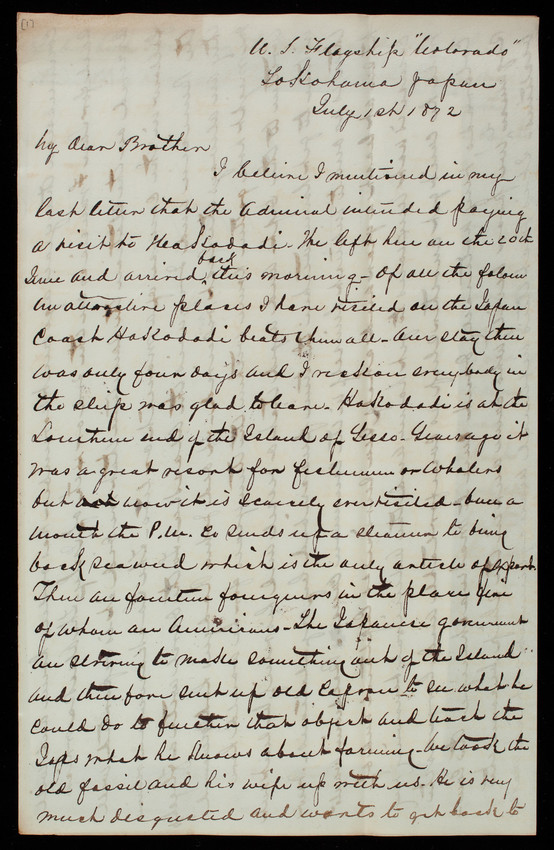 [1]
U. S. Flagship "Colorado"
Yokohama Japan
July 1st 1872
My dear Brother
I believe I mentioned in my
last letter that the Admiral intended paying
a visit to Hakodadi. We left here on the 20th
June and arrived back this morning - Of all the
unattractive places I have visited on the Japan
Coast Hakodadi beats them all - Our stay there
was only four days and I reckon everybody in
the ship was glad to leave - Hakodadi is at the
Southern end of the Island of Yesso - Years ago it
was a great resort for fishermen or Whalers
but now it is scarcely ever visited - Once a
month the P. M. Co sends up a steamer to bring
back seaweed which is the only article of export.
There are fourteen foreigners in the place five
of whom are Americans - The Japanese government
are striving to make something out of the Island
and therefore sent up old Capron to see what he
could do to further that object and teach the
Japs what he knows about farming - We took the
old fossil and his wife up with us. He is very
much disgusted and wants to get back to